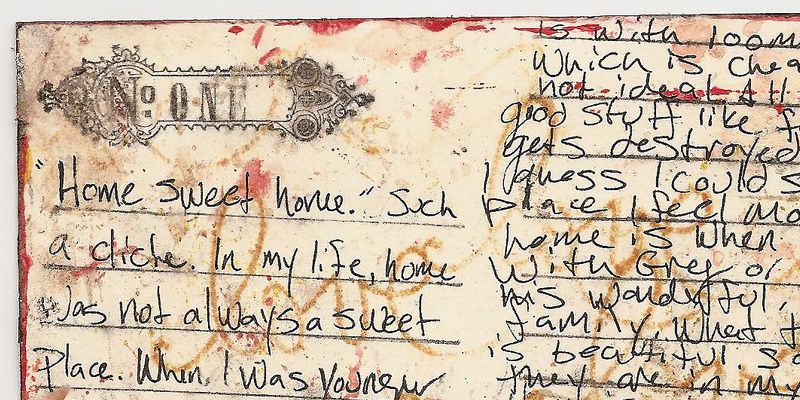 No ONE
"Home sweet home." Such
a cliche. In my life, home
was not always a sweet
Place. When I was younger
is with
which is
not ideal All
good stuff like
gets destroyed
I could
place I feel
home is when
With Greg or
his wonderful,
family. What
is beautiful.
they are in my